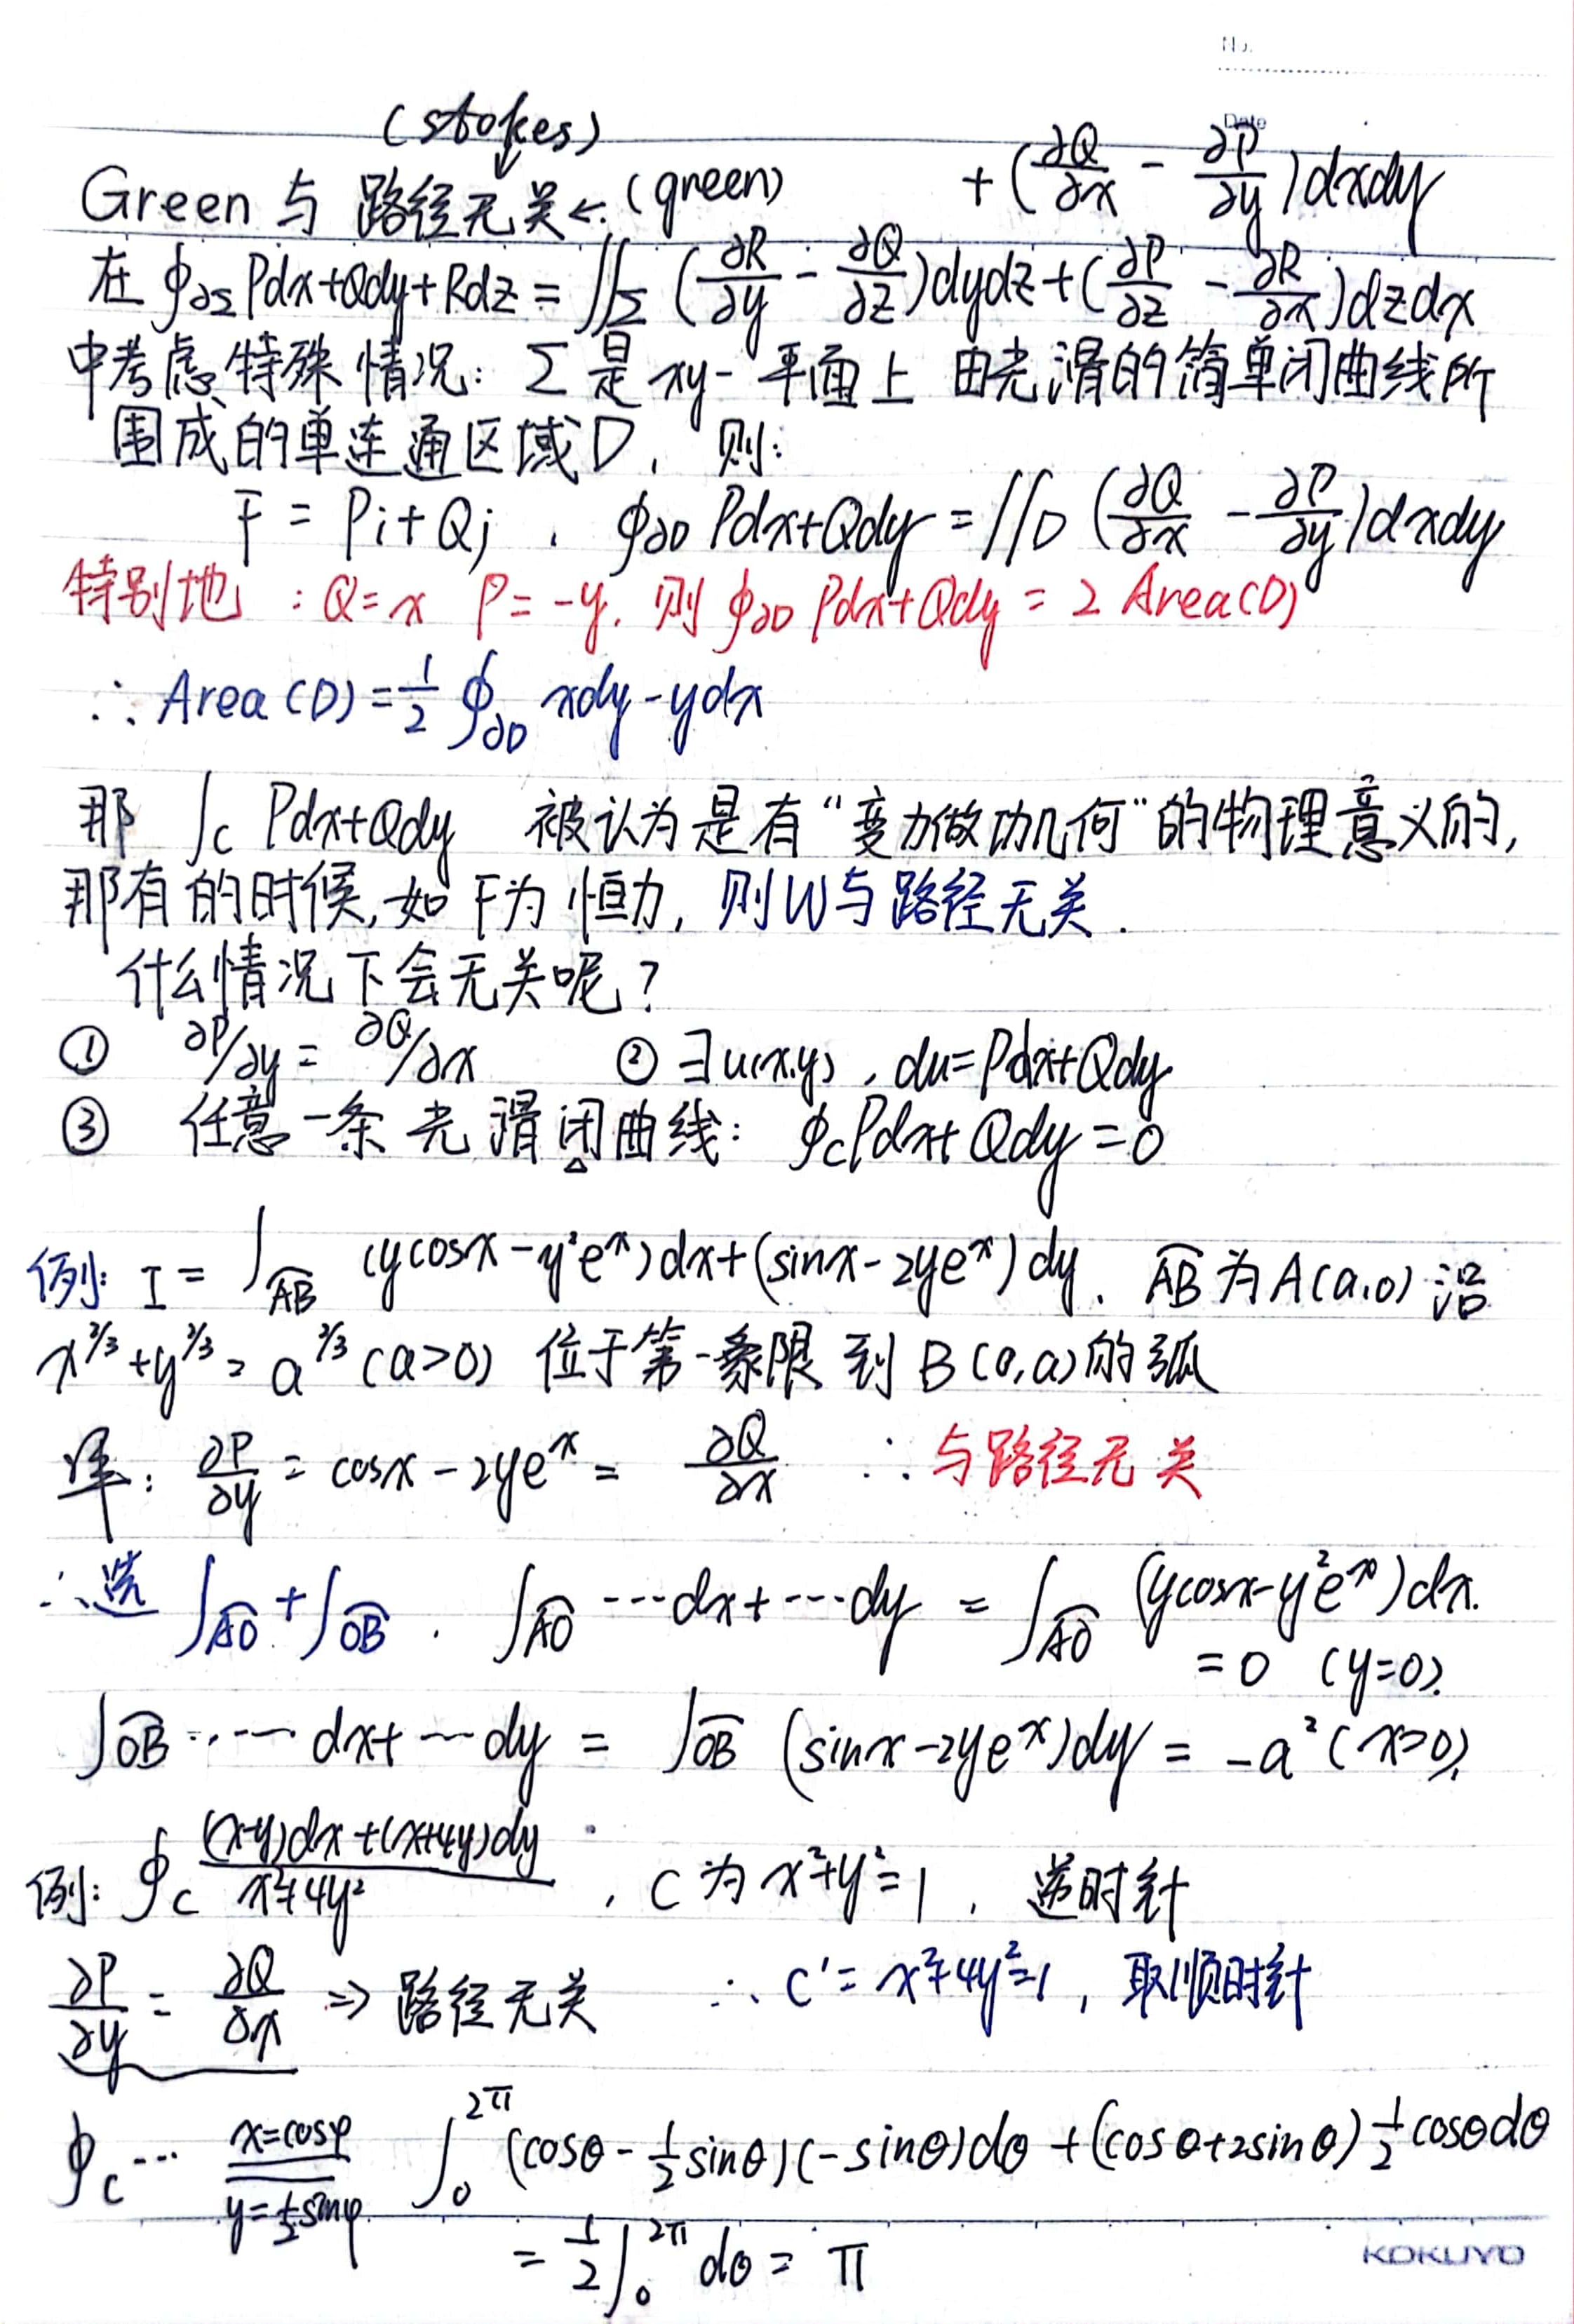 No.
Date
(stokes)
Green 与 路径无关 ←(green) + (∂Q/∂x - ∂P/∂y)dxdy
在 ∮∂Σ Pdx+Qdy+Rdz = ∬Σ (∂R/∂y - ∂Q/∂z)dydz+(∂P/∂z - ∂R/∂x)dzdx
中考虑特殊情况: Σ是 xy-平面上 由光滑的简单闭曲线所
围成的单连通区域D, 则:
F = Pi+Qj , ∮∂D Pdx+Qdy = ∬D (∂Q/∂x - ∂P/∂y)dxdy
特别地 : Q=x P=-y. 则 ∮∂D Pdx+Qdy = 2 Area(D)
∴ Area(D) = 1/2 ∮∂D xdy-ydx
那 ∫C Pdx+Qdy 被认为是有“变力做功几何”的物理意义的,
那有的时候,如 F为 恒力, 则W与路径无关.
什么情况下会无关呢?
① ∂P/∂y = ∂Q/∂x ② ∃u(x,y), du=Pdx+Qdy
③ 任意一条光滑闭曲线: ∮C Pdx+Qdy = 0
例: I = ∫AB (ycosx-y²eˣ)dx+(sinx-2yeˣ)dy. AB 为 A(a,0) 沿
x^2/3+y^2/3 = a^2/3 (a>0) 位于第一象限 到 B(0,a)的弧
: ∂P/∂y = cosx-2yeˣ = ∂Q/∂x ∴ 与路径无关
∴选 ∫AO + ∫OB . ∫AO ---dx+---dy = ∫AO (ycosx-y²eˣ)dx.
= 0 (y=0).
∫OB ---dx+---dy = ∫OB (sinx-2yeˣ)dy = -a² (x=0).
例: ∮C (x-y)dx+(x+4y)dy / x²+4y² , C 为 x²+y²=1 , 逆时针
∂P/∂y = ∂Q/∂x ⇒ 路径无关 ∴ C'= x²+4y²=1, 取顺时针
∮C --- x=cosφ y=1/2sinφ ∫₀^2π (cosθ-1/2sinθ)(-sinθ)dθ+(cosθ+2sinθ)1/2cosθdθ
= 1/2∫₀^2π dθ = π
KOKUYO